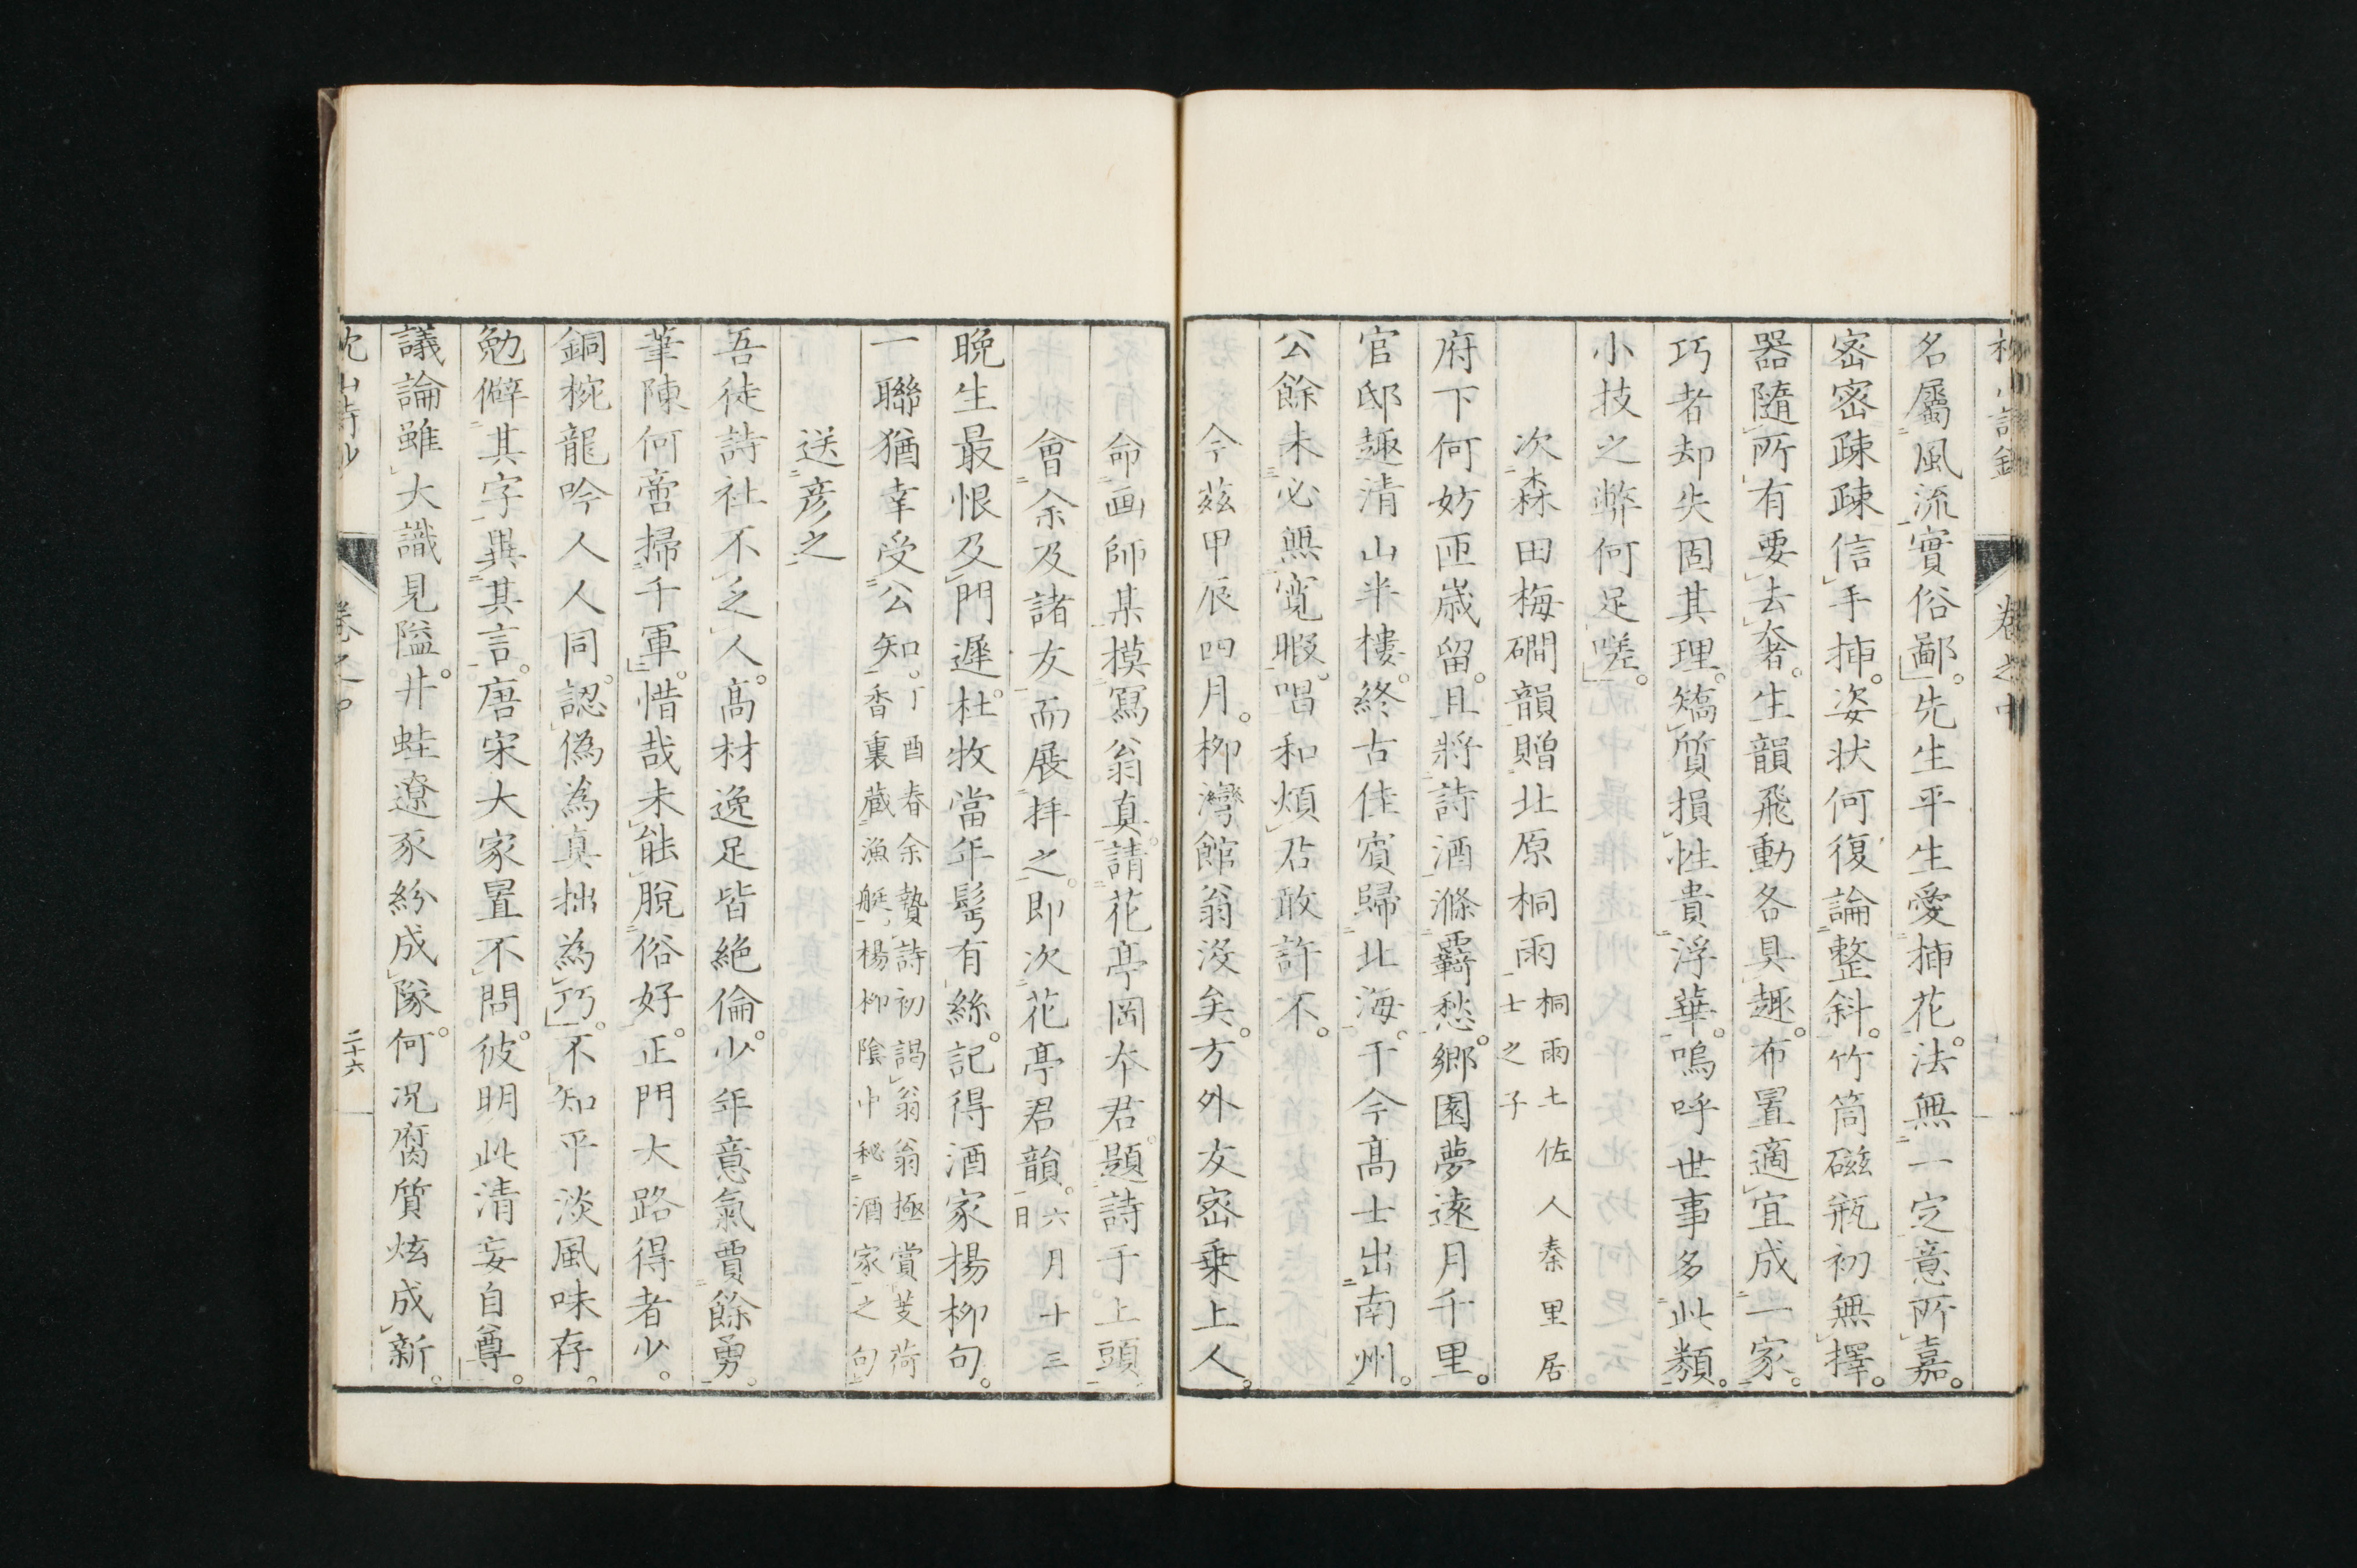 名屬風流實俗鄙。先生平生愛挿花。法無一定意所嘉。
密密疎疎信手挿。姿状何復論整斜。竹筒磁瓶初無擇。
器隨所有要去奢。生韻飛動各具趣。布置適宜成一家。
巧者却失固其理。矯質損性貴浮華。嗚呼世事多此類。
小技之弊何足嗟。
次森田梅礀韻贈北原桐雨 桐雨土佐人秦里居
士之子
府下何妨匝歳留。且將詩酒滌覊愁。郷園夢遠月千里。
官邸趣清山半樓。終古佳賓歸北海。于今髙士出南州。
公餘未必無寛暇。唱和煩君敢許不。
今茲甲辰四月。柳灣館翁沒矣。方外友密乗上人。
命画師某摸寫翁真。請花亭岡本君。題詩于上頭。
會余及諸友而展拝之。即次花亭君韻。六月十三
日
晩生最恨及門遲。杜牧當年髩有絲。記得酒家楊柳句。
一聯猶幸受公知。丁酉春余贄詩初謁翁翁極賞芰荷
香裏蔵漁艇、楊柳陰中秘酒家之句
送彦之
吾徒詩社不乏人。髙材逸足皆絶倫。少年意氣賈餘勇。
筆陳何啻掃千軍。惜哉未能脱俗好。正門大路得者少。
銅椀龍吟人人同。認僞為真拙為巧。不知平淡風味存。
勉僻其字異其言。唐宋大家置不問。彼明此清妄自尊。
議論雖大識見隘。井蛙遼豕紛成隊。何况腐質炫成新。
卷之中
二十六